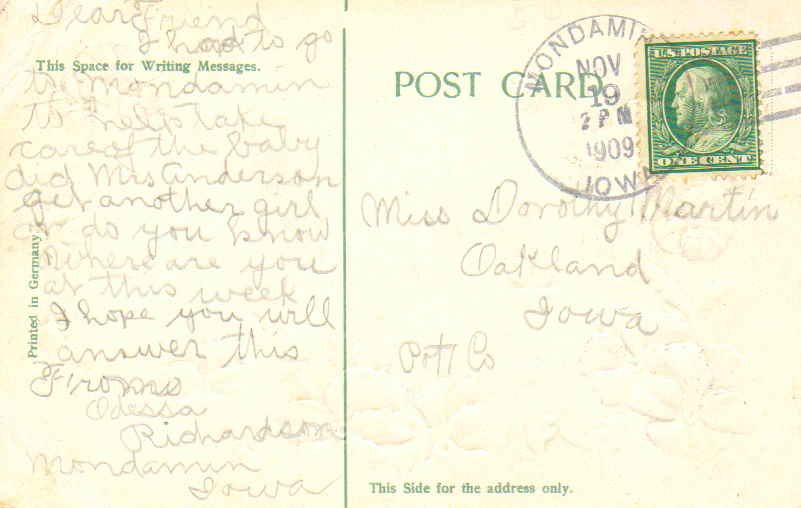 Dear Friend
I had to go
This Space for Writing Messages.
to Mondamin
to help take
care of the baby
did Mrs Anderson
get another girl
or do you know
Where are you
at this week
I hope you will
answer this
From
Odessa
Richardson
Mondamin
Iowa
Printed in Germany
POST CARD
MONDAMIN
NOV
19
2 PM
1909
IOWA
U.S. POSTAGE
ONE CENT
Miss Dorothy Martin
Oakland
Iowa
Pott Co
This Side for the address only.